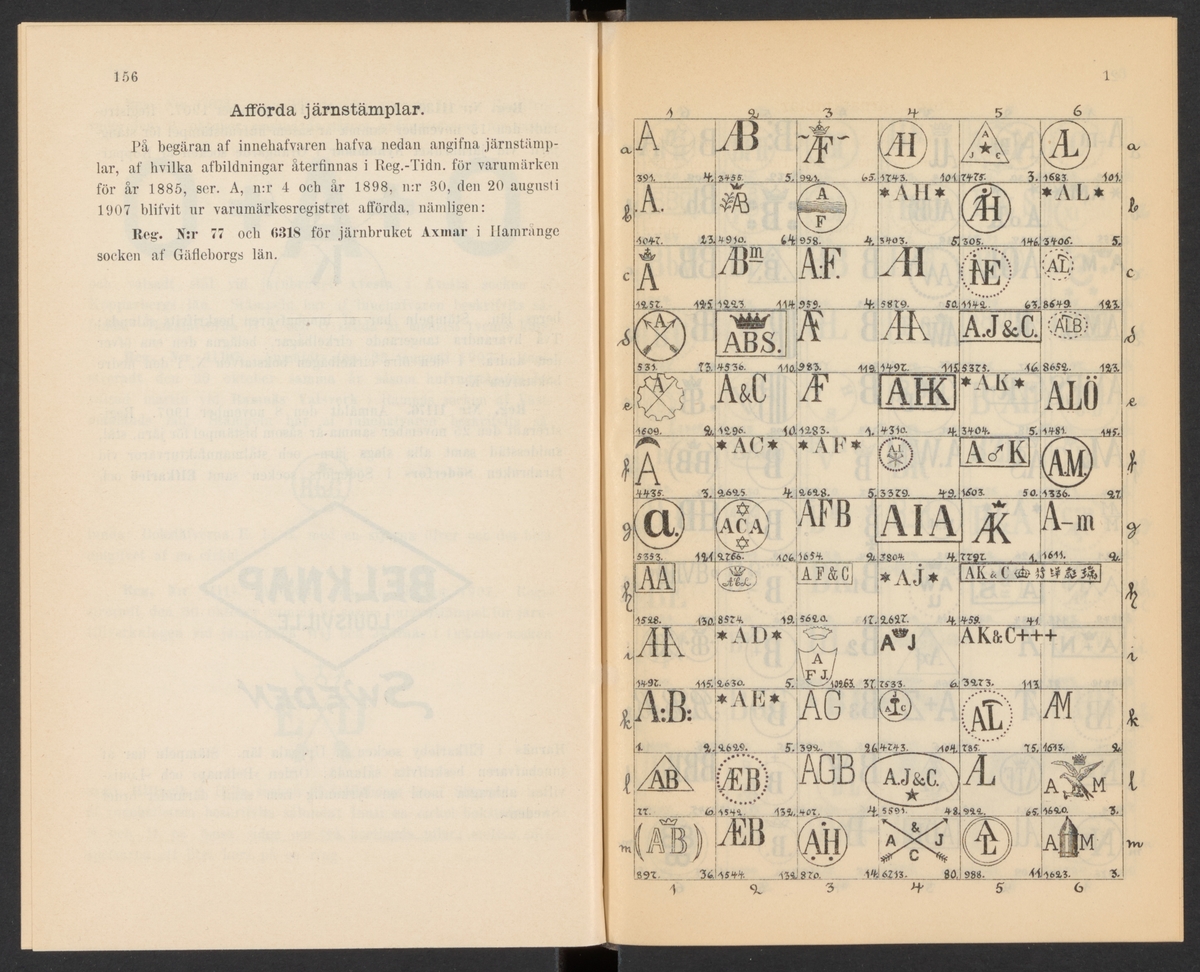 156
Afförda järnstämplar.
På begäran af innehafvaren hafva nedan angifna järnstämp-
lar, af hvilka afbildningar återfinnas i Reg.-Tidn. för varumärken
för år 1885, ser. A, n:r 4 och år 1898, n:r 30, den 20 augusti
1907 blifvit ur varumärkesregistret afförda, nämligen:
Reg. N:r 77 och 6318 för järnbruket Axmar i Hamrånge
socken af Gäfleborgs län.
1
1 2 3 4 5 6
a A ÆB Æ AH A J C AL a
391. 4. 3455. 5. 921. 65. 1743. 101. 7475. 3. 1683. 101.
b .A. AB A F *AH* AH *AL* b
1047. 23. 4910. 64. 958. 4. 3403. 5. 305. 146. 3406. 5.
c A ABm A.F. AH AL c
1257. 125. 1223. 114. 959. 4. 5879. 50. 1142. 63. 8649. 123.
d A ABS. AF A.J&C. ALB d
531. 73. 4536. 110. 983. 112. 1497. 115. 5375. 16. 8652. 123.
e A A&C AF AHK *AK* ALÖ e
1609. 2. 1296. 10. 1283. 1. 4310. 4. 3404. 5. 1481. 145.
f A *AC* *AF* A♂K A.M. f
4435. 3. 2625. 4. 2628. 5. 3379. 49. 1603. 50. 1336. 27.
g a. ACA AFB AIA AK A-m g
5353. 121. 2766. 106. 1654. 2. 3804. 4. 7797. 1. 1611. 2.
h AA A&L AF&C *AJ* AK&C h
1528. 130. 8574. 19. 5620. 17. 2627. 4. 459. 41.
i AA *AD* A FJ. A J AK&C+++ i
1497. 115. 2630. 5. 10263. 37. 7533. 6. 3273. 113.
k A:B: *AE* AG AJC AL AM k
1. 2. 2629. 5. 392. 26. 4743. 104. 785. 75. 1613. 2.
l AB ÆB AGB A.J&C. AL A M l
77. 6. 1542. 132. 407. 4. 5591. 48. 922. 65. 1620. 3.
m (AB) ÆB AH A & J C AL A M m
897. 36. 1544. 132. 870. 14. 6213. 80. 988. 11. 1623. 3.
1 2 3 4 5 6